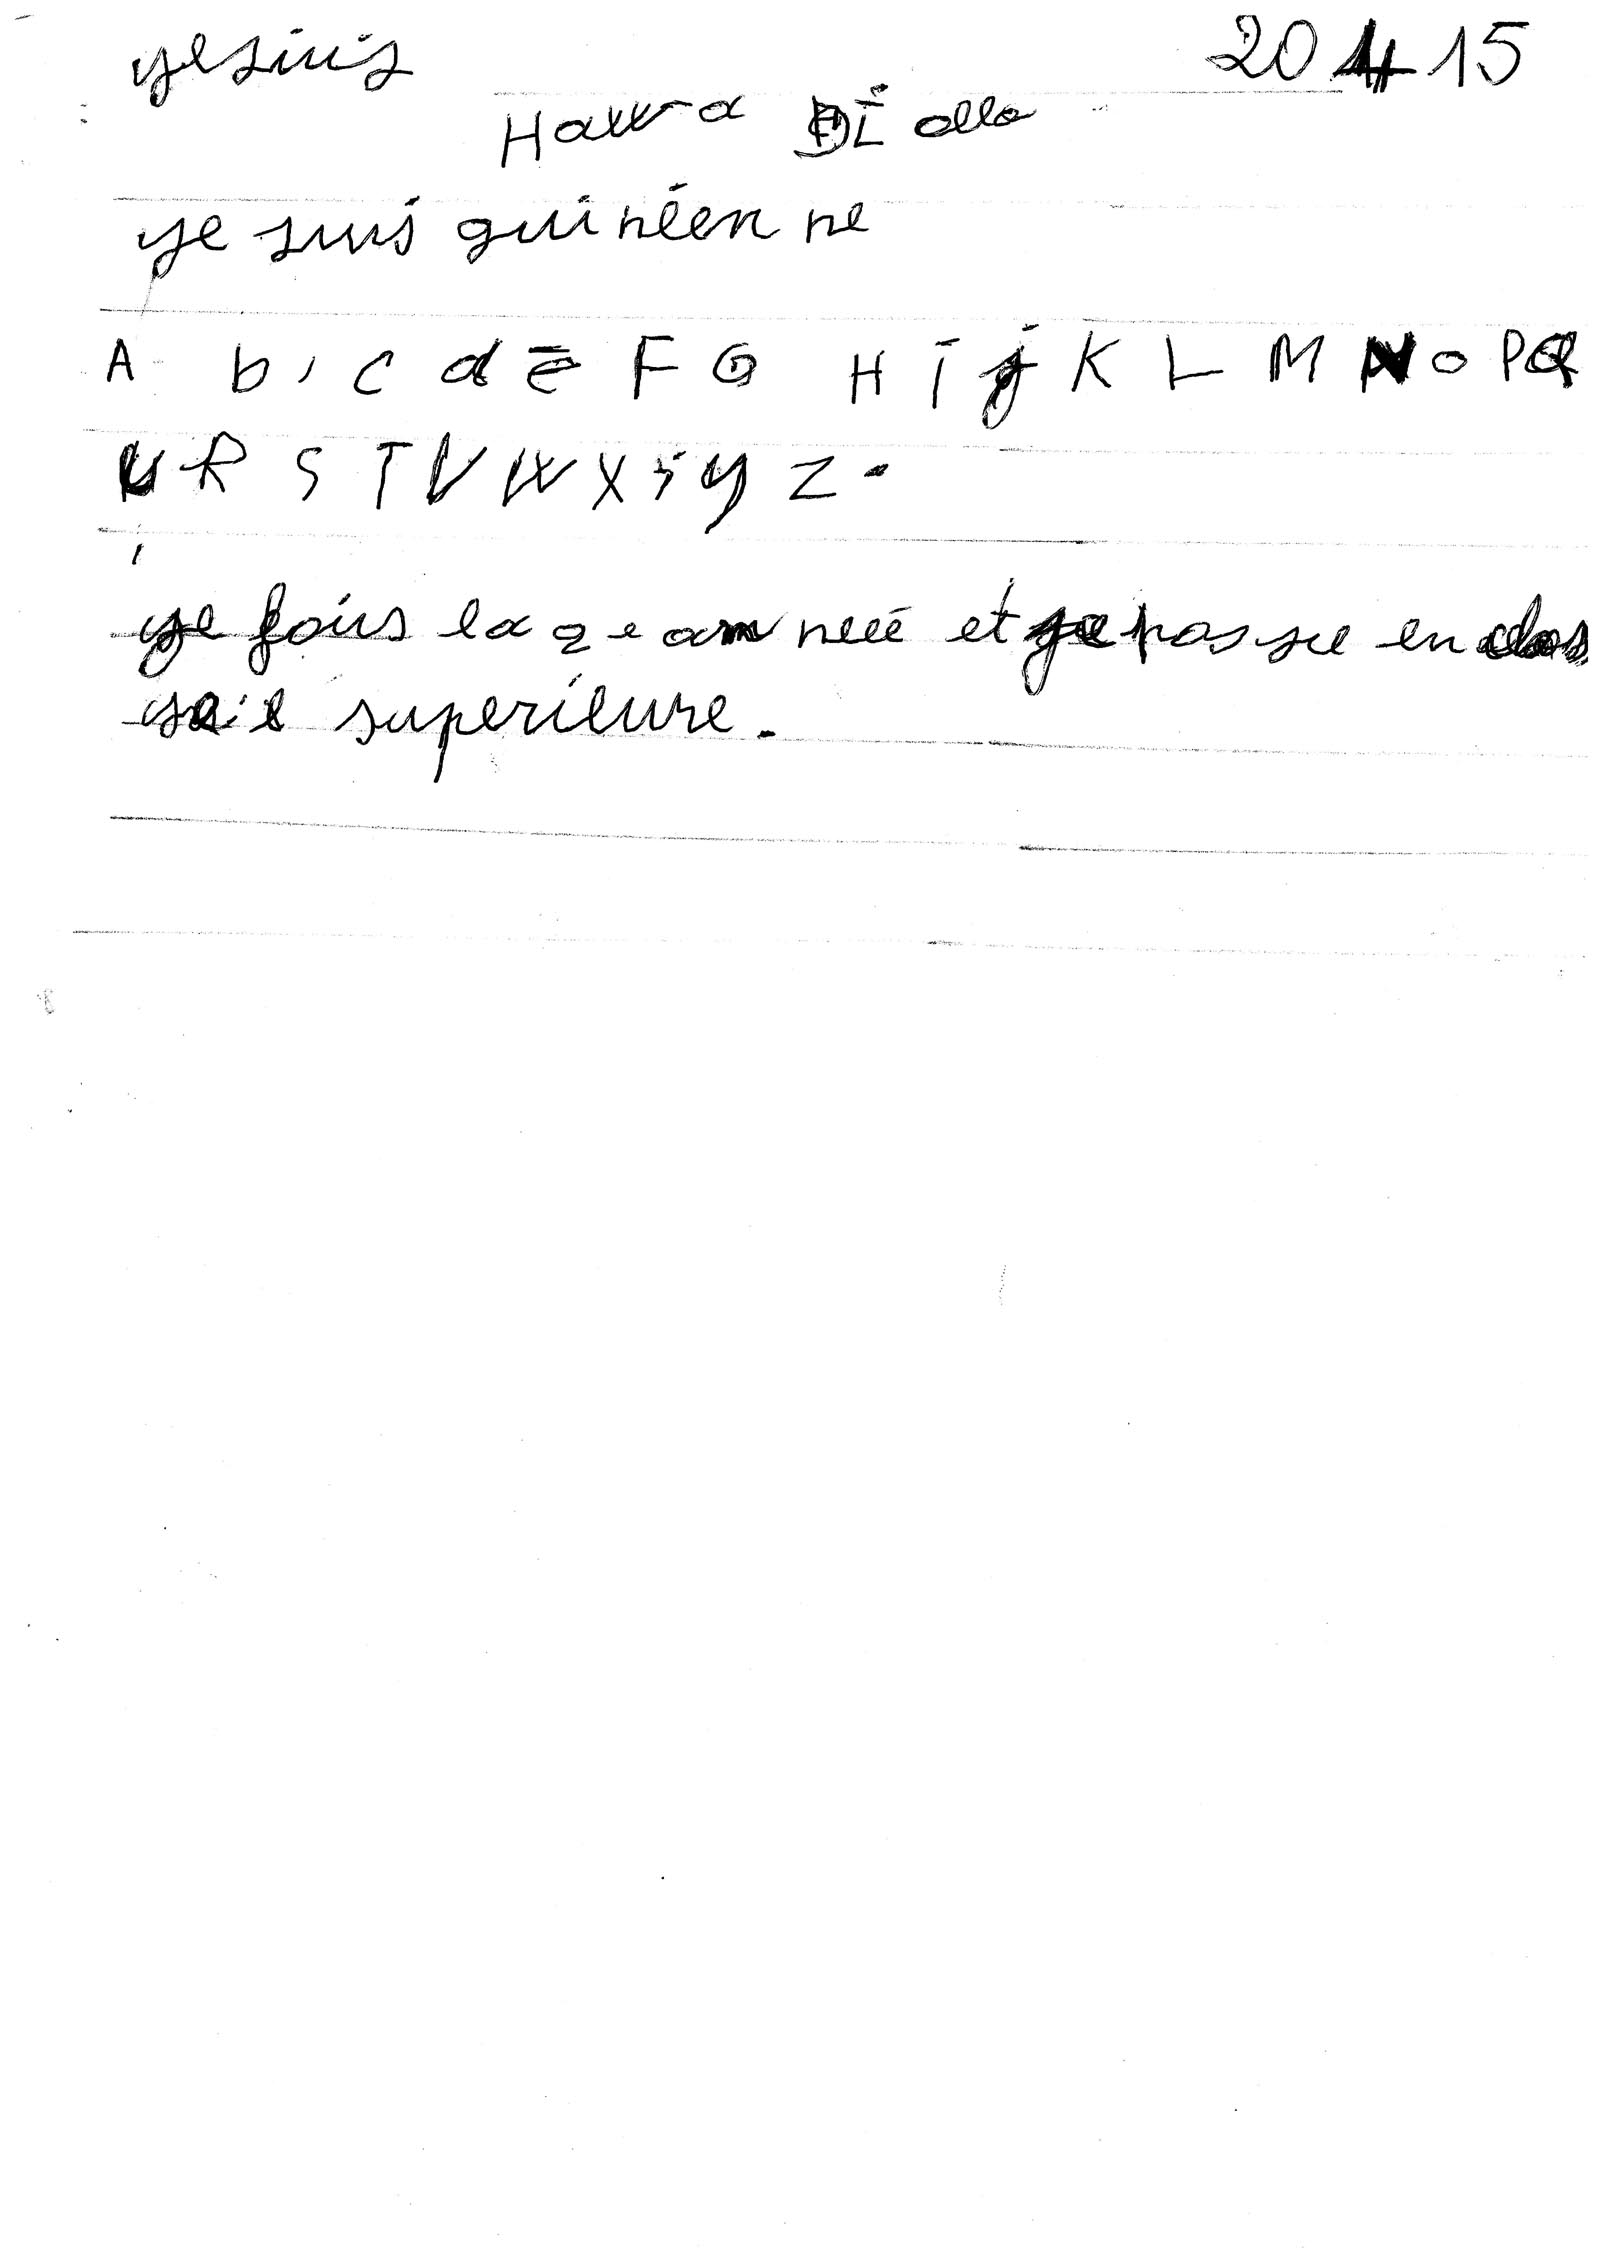 yesuis 20 4 15
Hawa DÏ allo
ye suis guinéen ne
A b, c d e F G H I j K L M N O P Q
U R S T V W X Y Z.
ye fais la 2 e ann neé et je passe en clas
se supérieure.